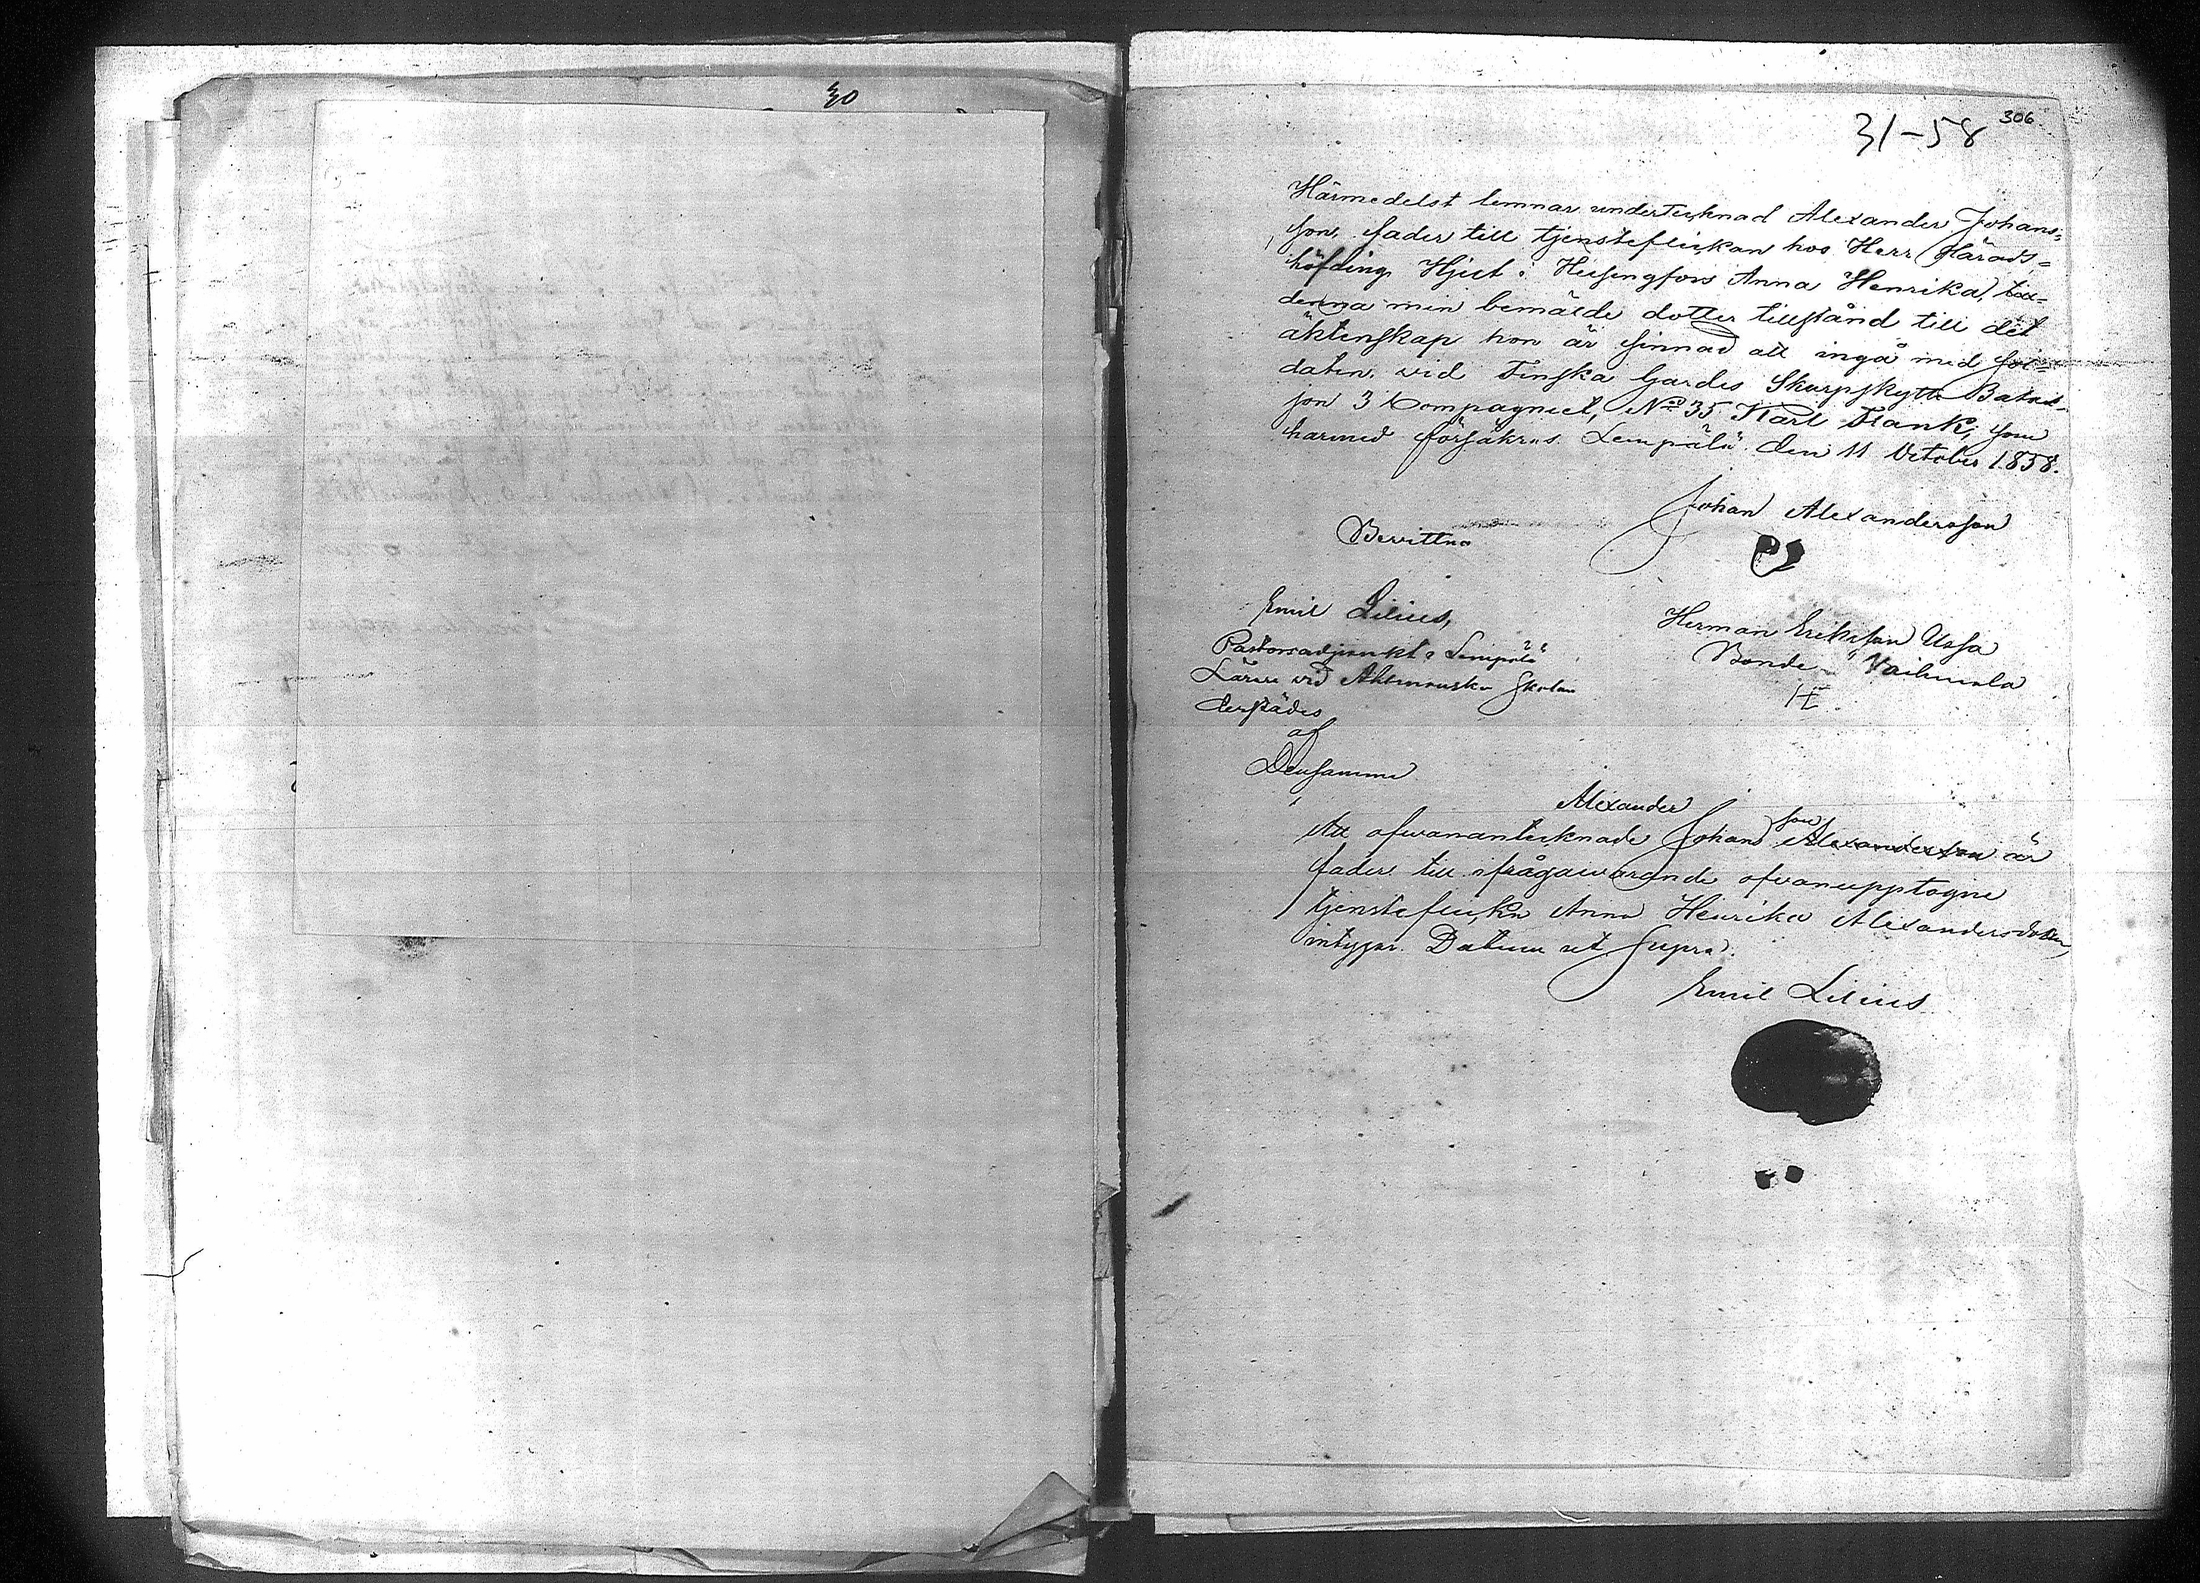 30
306
31-58
Härmedelst lemnar undertecknad Alexander Johans=
son, fader till tjensteflickan hos Herr Härads=
höfding Hjelt i Helsingfors Anna Henrika,
denna min bemälde dotter tillstånd till det
äktenskap hon är sinnad att ingå med Sol=
daten vid Finska Gardes Skarpskytte Batail-
jon 3 Compagniet, No 35 Karl Frank, som
härmed försäkras. Lempälä den 11 October 1858.
Johan Alexandersson
Bevittna
Emil Lilius,
Pastorsadjunkt i Lempälä
Lärare vid Ahlmanska Skolan
derstädes
af
Densamme
Herman Eriksson Ussa
Bonde i Vaihmala
Alexander
Att ofvanantecknade Johans son Alexandersson är
fader till ifrågavarande ofvanupptagne
tjensteflicka Anna Henrika Alexandersdotter,
intygar. Datum ut Supra.
Emil Lilius